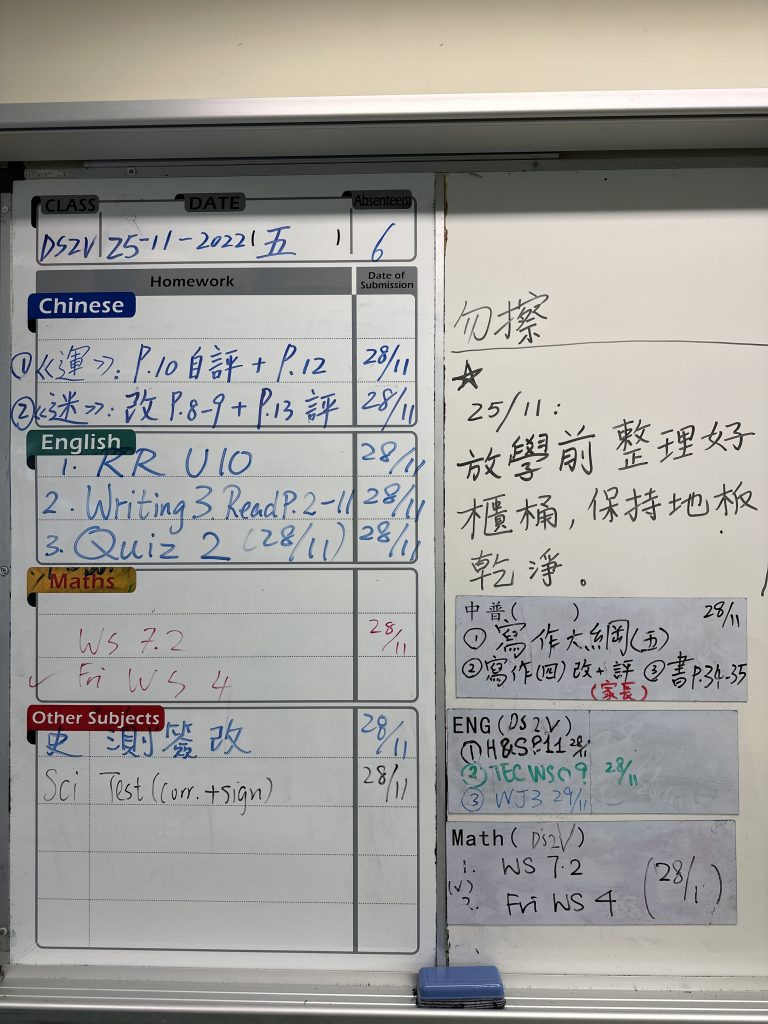 CLASS DATE Absentee(s)
DS2V 25-11-2022 (五) 6
Homework Date of Submission
Chinese
① 《運》: P.10 自評 + P.12 28/11
② 《迷》: 改 P.8-9 + P.13 評 28/11
English
1. RR U10 28/11
2. Writing 3. Read P. 2-11 28/11
3. Quiz 2 (28/11) 28/11
Maths
WS 7.2 28/11
✓ Fri WS 4
Other Subjects
史 測簽改 28/11
Sci Test (corr. + sign) 28/11
勿擦
★
25/11:
放學前整理好
櫃桶,保持地板
乾淨。
中普( ) 28/11
① 寫作大綱(五)
② 寫作(四) 改 + 評 ③ 書 P.34-35
(家長)
ENG (DS2V)
① H&S P.11 28/11
② TEC WS 9 28/11
③ WJ3 29/11
Math (DS2V)
1. WS 7.2
(v) 2. Fri WS 4 (28/1)